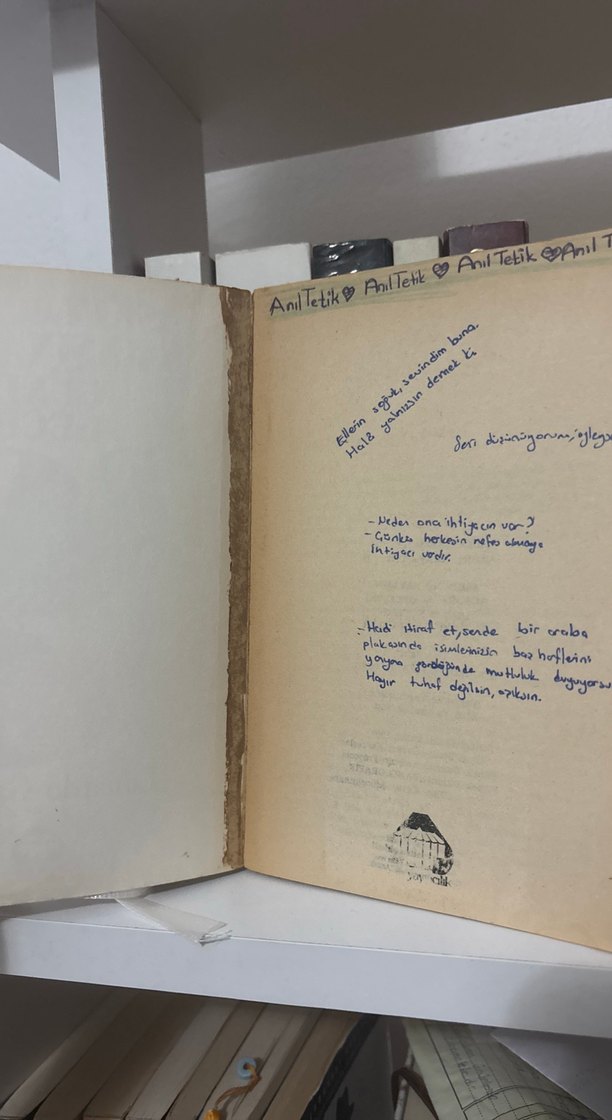 Anıl Tetik Anıl Tetik Anıl Tetik Anıl T
Ellerin soğuk, sevindim buna.
Hala yalnızsın demek ki
Seni düşünüyorum, öyleyse
- Neden ona ihtiyacın var?
- Çünkü herkesin nefes almaya
ihtiyacı vardır.
- Hadi itiraf et, sende bir araba
plakasında isimlerinizin baş harflerini
yanyana gördüğünde mutluluk duyuyorsu
Hayır tuhaf değilsin, aşıksın.
yayıncılık